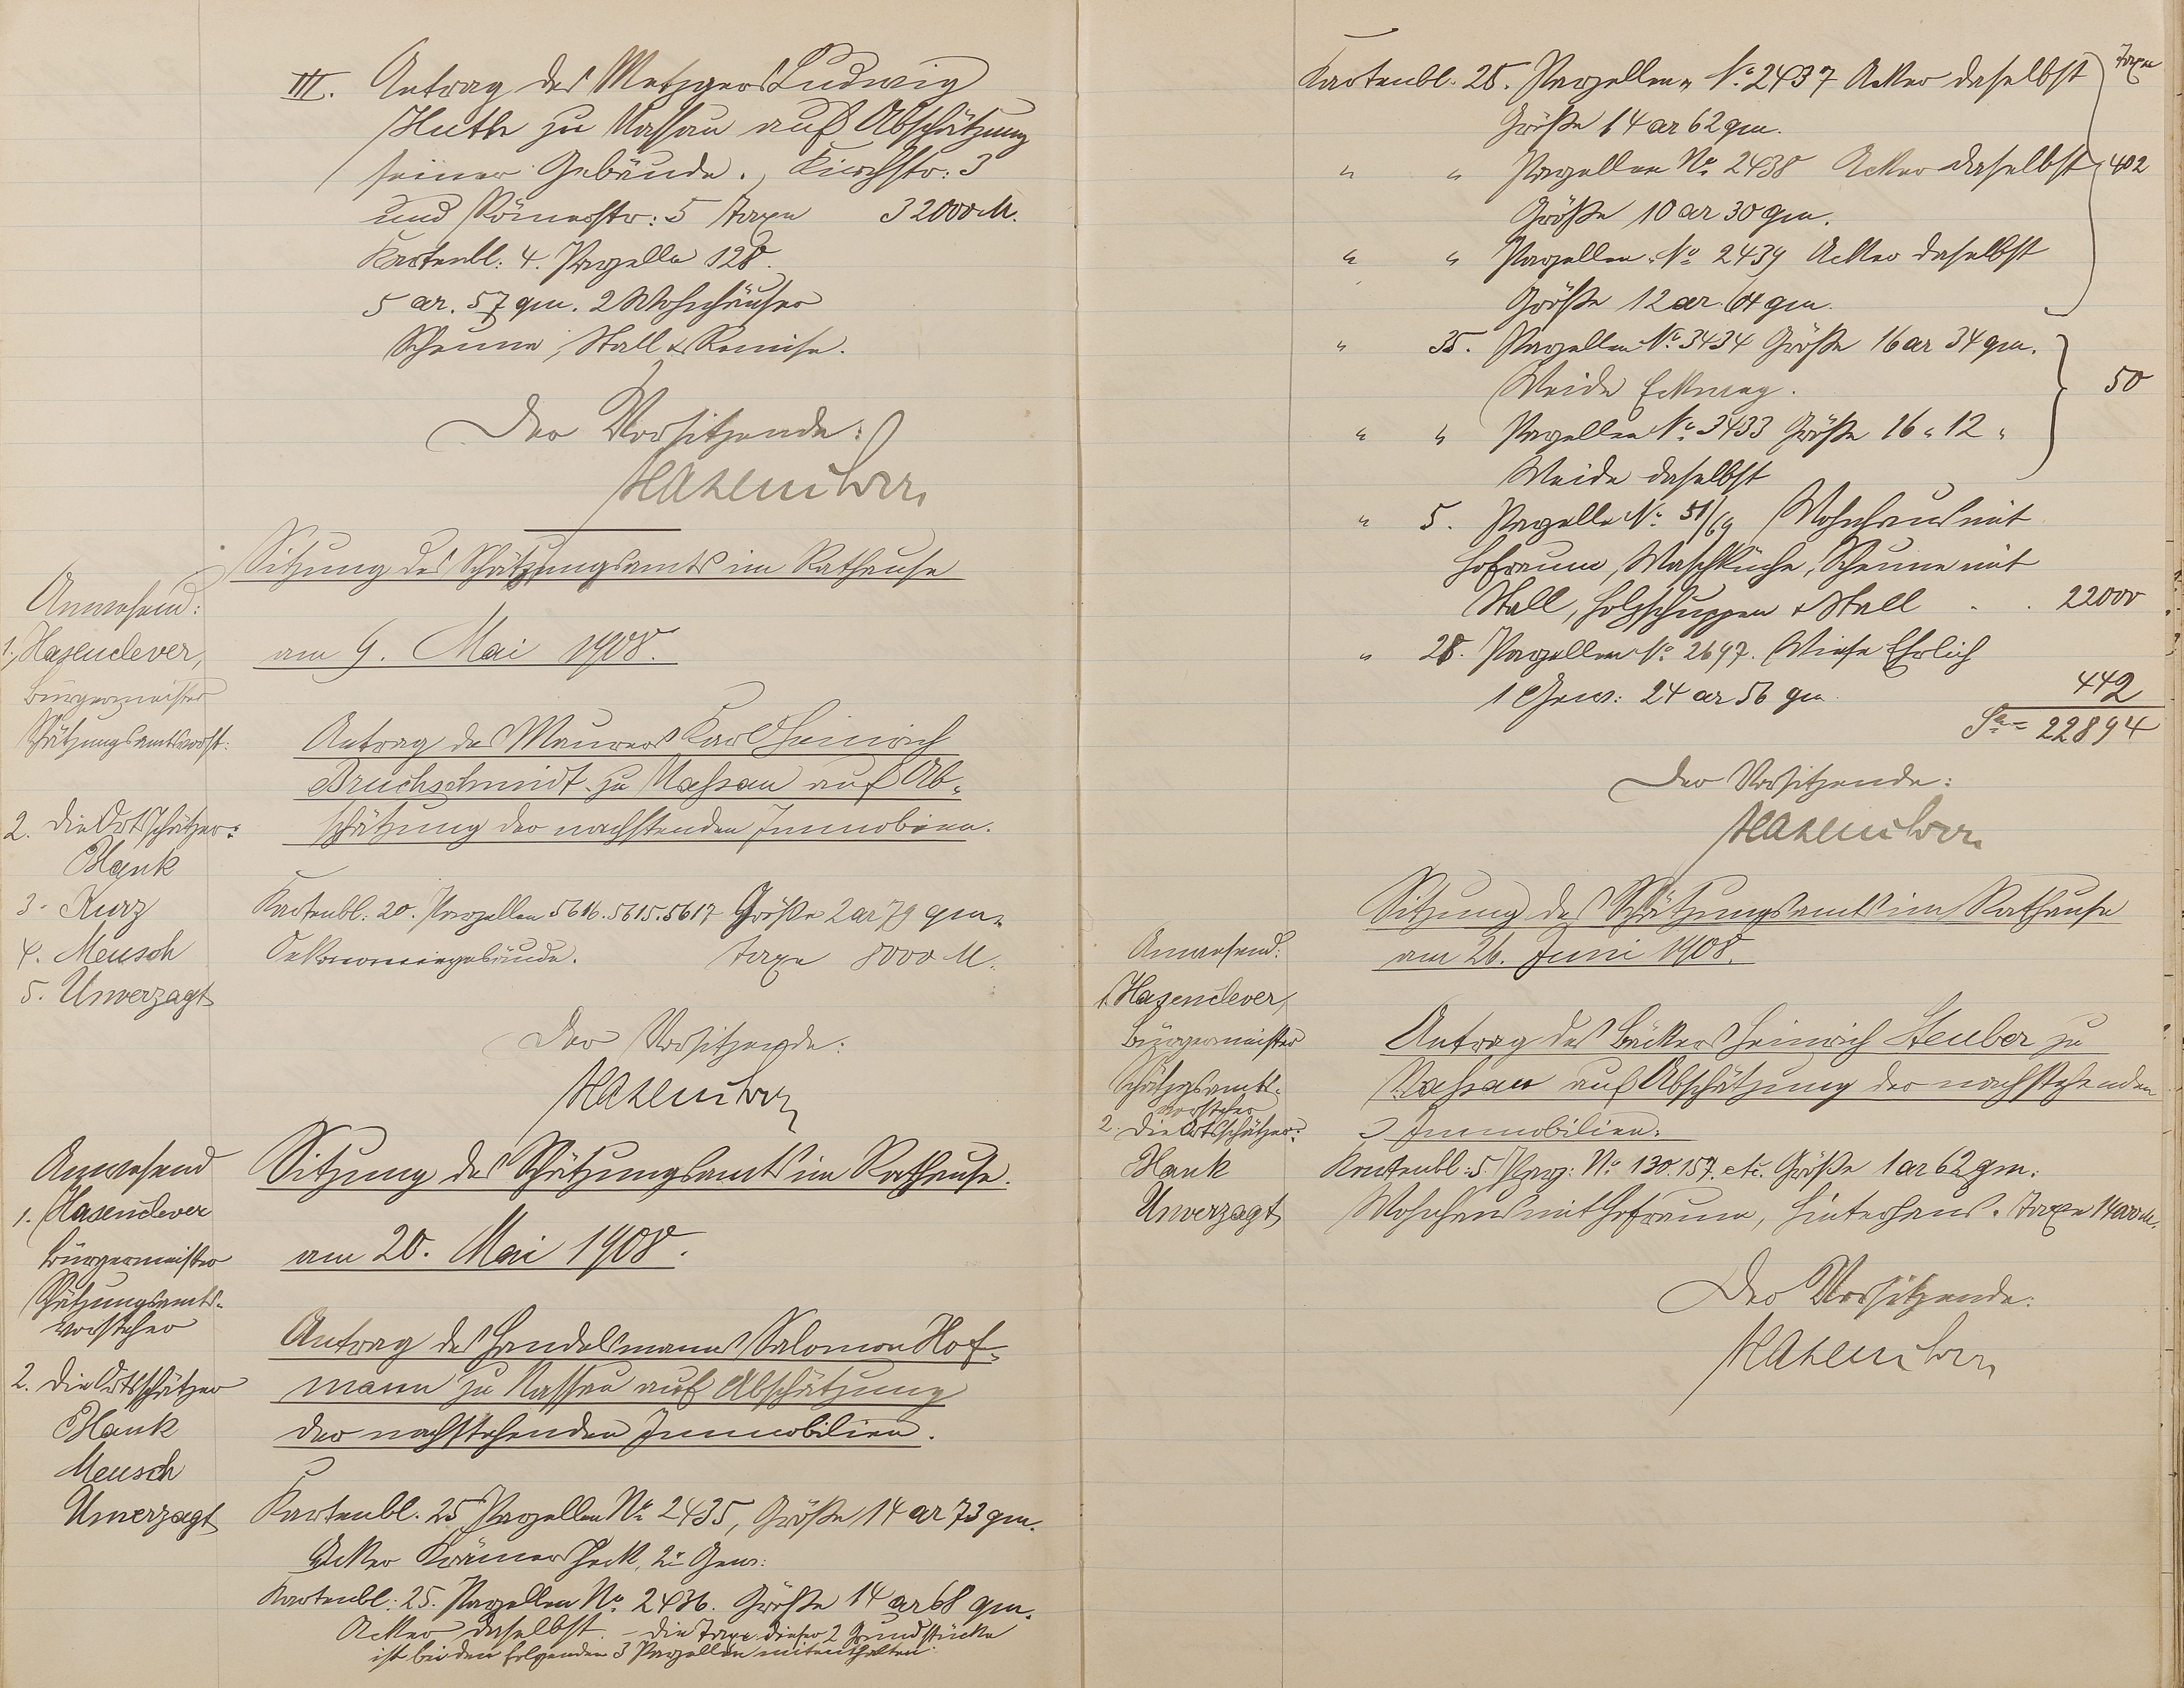 III. Antrag des Metzgers Ludwig
Huth zu Nassau auf Abschätzung
seiner Gebäude. Kirchstr: 3
und Römerstr: 5 Taxe 32000 M.
Kartenbl: 4. Parzelle 128.
5 ar. 57 qm. 2 Wohnhäuser
Scheune, Stall & Remise.
Der Vorsitzende:
Hasenclever
Sitzung des Schätzungsamts im Rathause
am 9. Mai 1908.
Anwesend:
1. Hasenclever,
Bürgermeister
Schätzungsamtsvorst:
2. Die Ortsschätzer:
Hank
3. Kurz
4. Meusch
5. Unverzagt
Antrag des Maurers Karl Heinrich
Bruchschmidt zu Nassau auf Ab-
schätzung der nachstenden Immobien.
Kartenbl: 20. Parzellen 5616. 5615. 5617 Größe 2 ar 79 qm.
Oekonomiegebäude. Taxe 8000 M.
Der Vorsitzende:
Hasenclever
Sitzung des Schätzungsamts im Rathause.
am 20. Mai 1908.
Anwesend
1. Hasenclever
Bürgermeister
Schätzungsamts-
vorsteher
2. Die Ortsschätzer
Hank
Meusch
Unverzagt
Antrag des Handelsmanns Salomon Hof-
mann zu Nassau auf Abschätzung
der nachstehenden Immobilien.
Kartenbl. 25 Parzellen No 2435, Größe 14 ar 73 qm.
Acker Krämersheck, 2e Gew:
Kartenbl: 25. Parzellen No. 2436. Größe 14 ar 68 qm.
Acker daselbst. - Die Taxe dieser 2 Grundstücke
ist bei den folgenden 3 Parzellen mitenthalten.
Taxe
Kartenbl. 25. Parzellen No. 2437 Acker daselbst
Größe 14 ar 62 qm.
" " Parzellen No. 2438 Acker daselbst 402
Größe 10 ar 30 qm.
" " Parzellen No 2439 Acker daselbst
Größe 12 ar 64 qm.
" 35. Parzellen No. 3434 Größe 16 ar 34 qm.
Weide Eckweg. 50
" " Parzellen No. 3433 Größe 16 " 12 "
Weide daselbst
" 5. Parzelle No. 51/69 Wohnhaus mit
Hofraum, Waschküche, Scheune mit
Stall, Holzschuppen & Stall . . 22000
" 28. Parzellen No. 2697. Wiese Ehrlich
1 Gew: 24 ar 56 qm. 442
Sa = 22894
Der Vorsitzende:
Hasenclever
Sitzung des Schätzungsamts im Rathause
am 26. Juni 1908.
Anwesend:
1. Hasenclever,
Bürgermeister
Schätzgsamts-
vorsteher
2. Die Ortsschätzer:
Hank
Unverzagt
Antrag des Bäckers Heinrich Steuber zu
Nassau auf Abschätzung der nachstehenden
Immobilien:
Kartenbl: 5. Parz: No. 130. 157. etc. Größe 1 ar 62 qm.
Wohnhaus mit Hofraum, Hinterhaus. Taxe 14000 M.
Der Vorsitzende:
Hasenclever